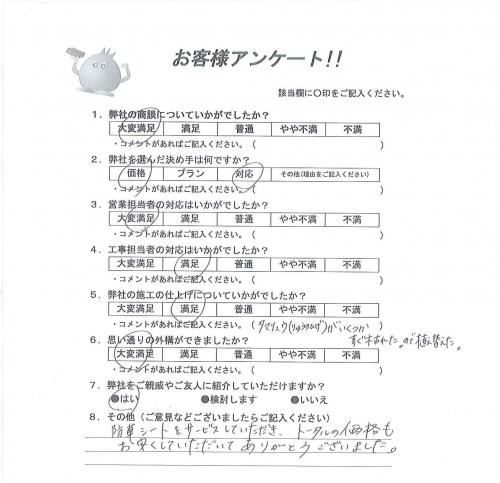 お客様アンケート!!
該当欄に〇印をご記入ください。
1. 弊社の商談についていかがでしたか?
大変満足 満足 普通 やや不満 不満
・コメントがあればご記入ください。(
2. 弊社を選んだ決め手は何ですか?
価格 プラン 対応 その他(理由をご記入ください)
・コメントがあればご記入ください。(
3. 営業担当者の対応はいかがでしたか?
大変満足 満足 普通 やや不満 不満
・コメントがあればご記入ください。(
4. 工事担当者の対応はいかがでしたか?
大変満足 満足 普通 やや不満 不満
・コメントがあればご記入ください。(
5. 弊社の施工の仕上げについていかがでしたか?
大変満足 満足 普通 やや不満 不満
・コメントがあればご記入ください。(タマリュウ(りゅうのひげ)がいくつか
すぐ枯れた。ので植え替えた。
6. 思い通りの外構ができましたか?
大変満足 満足 普通 やや不満 不満
・コメントがあればご記入ください。(
7. 弊社をご親戚やご友人に紹介していただけますか?
●はい ●検討します ●いいえ
8. その他(ご意見などございましたらご記入ください)
防草シートをサービスしていただき、トータルの価格も
お安くしていただいてありがとうございました。